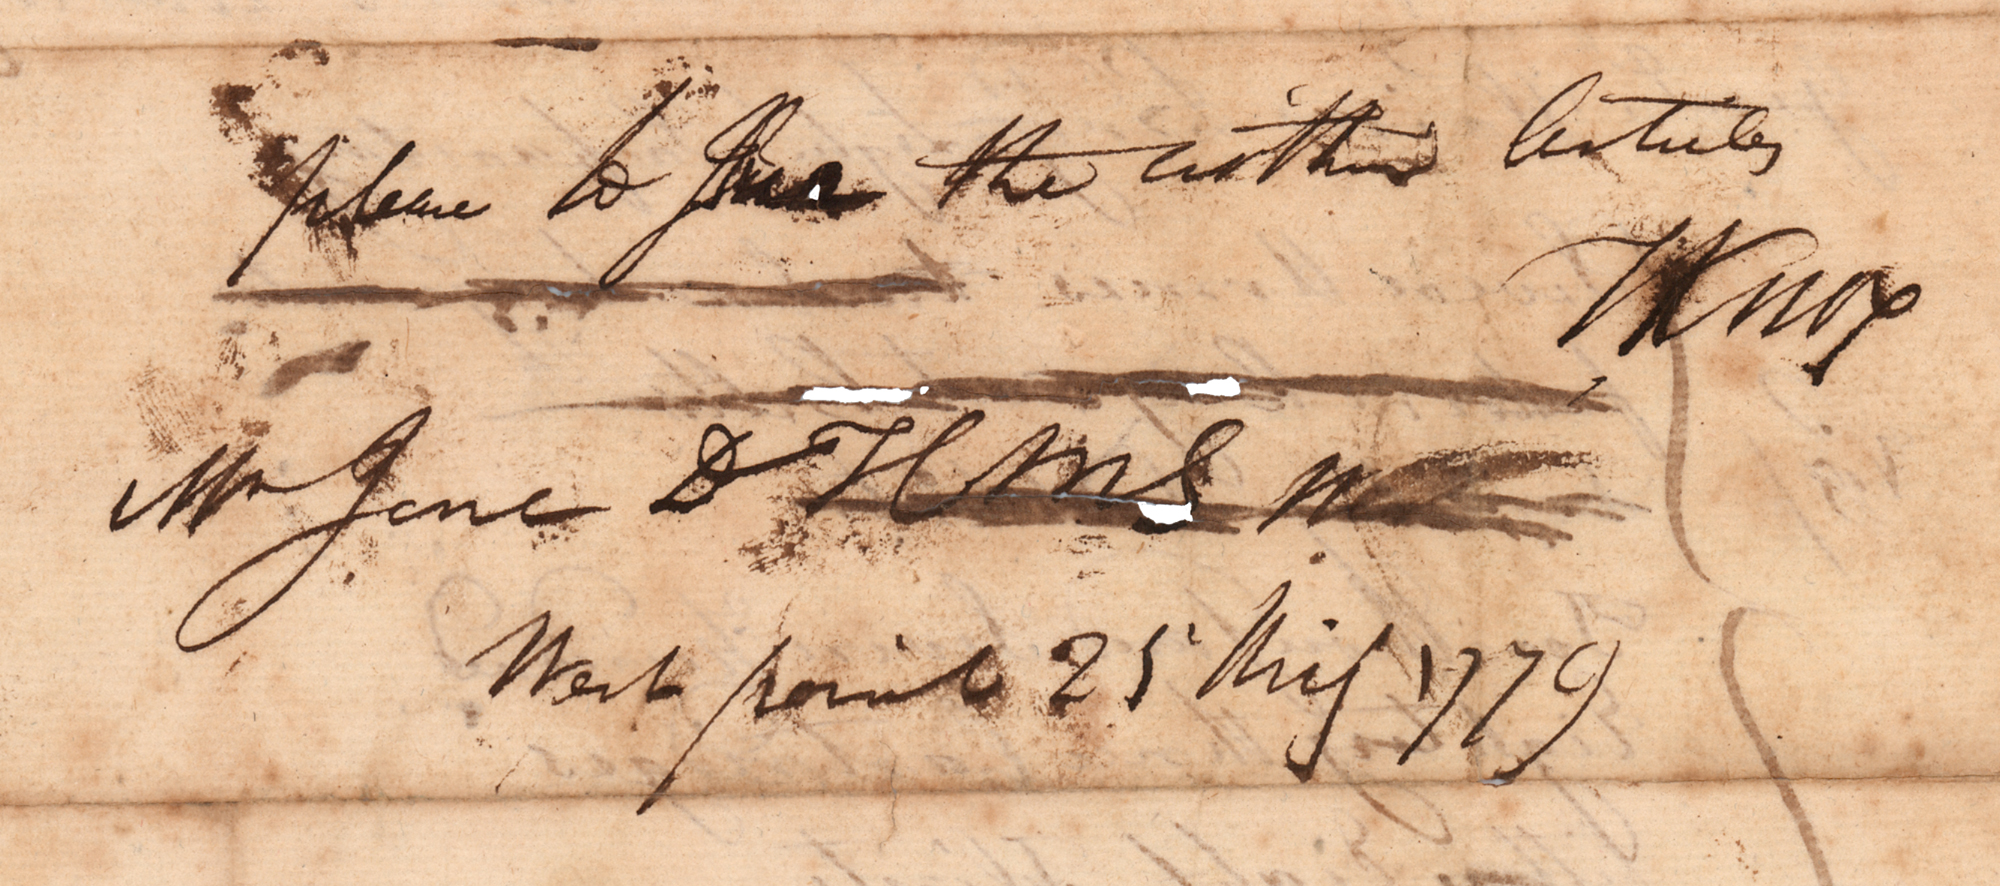 please to Give the within Articles
HKnox
Mr Jone D C M S
West point 25 Aug 1779